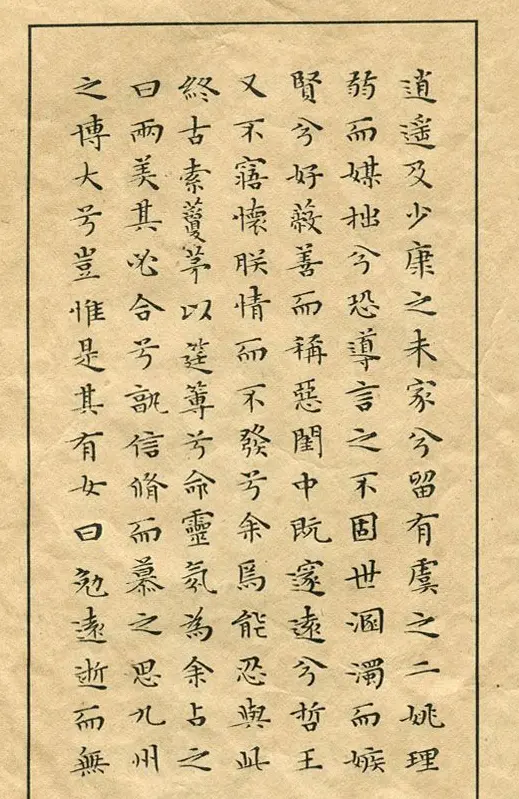 逍遙及少康之未家兮留有虞之二姚理
弱而媒拙兮恐導言之不固世溷濁而嫉
賢兮好蔽善而稱惡閨中既邃遠兮哲王
又不寤懷朕情而不發兮余焉能忍與此
終古索藑茅以筳篿兮命靈氛為余占之
曰兩美其必合兮孰信脩而慕之思九州
之博大兮豈惟是其有女曰勉遠逝而無